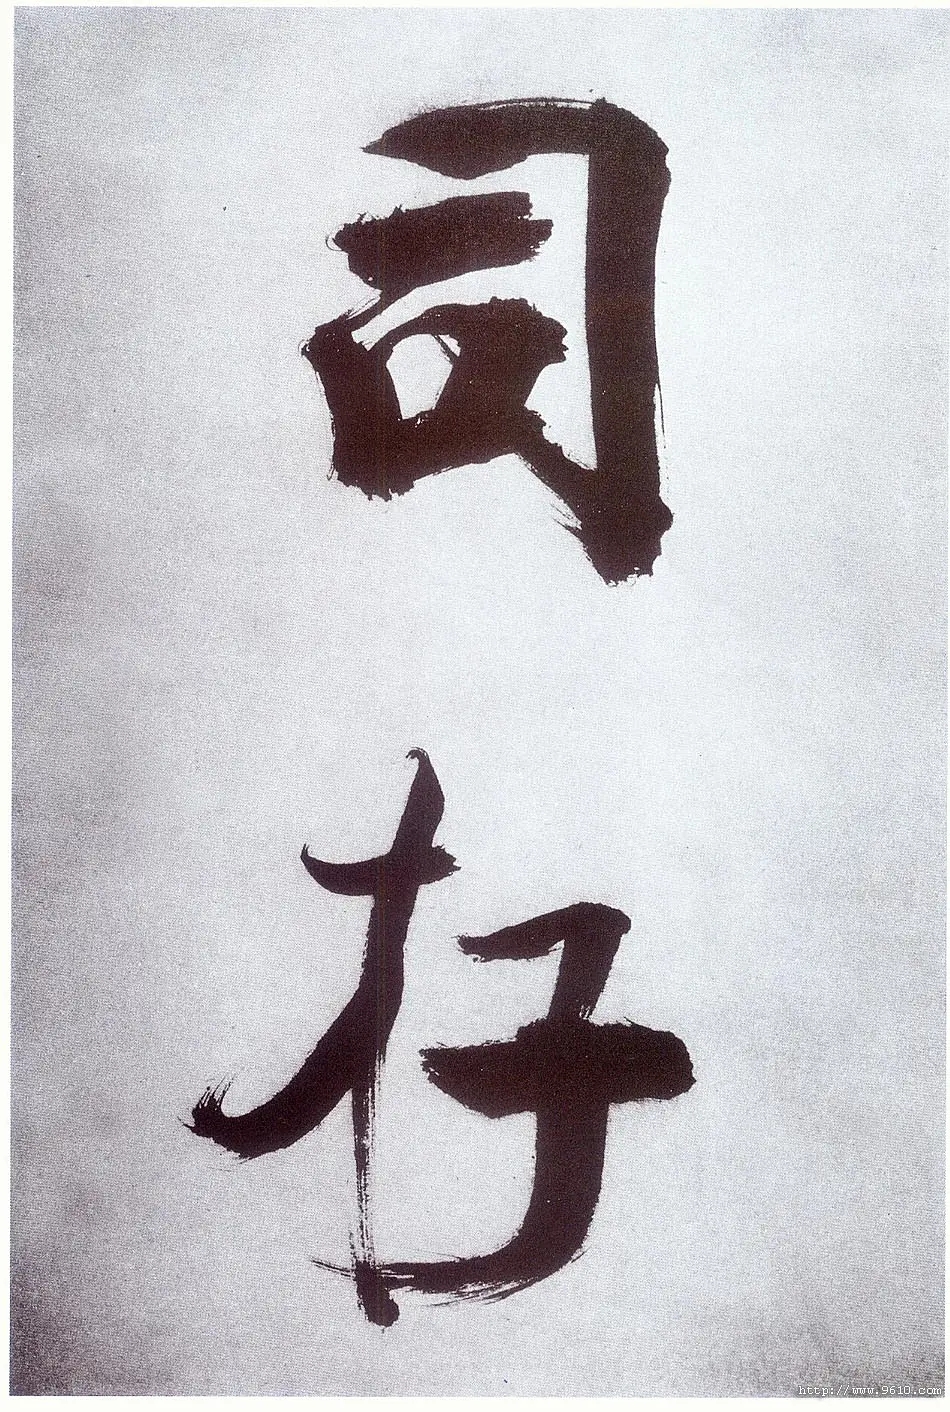 司
存
http://www.9610.com